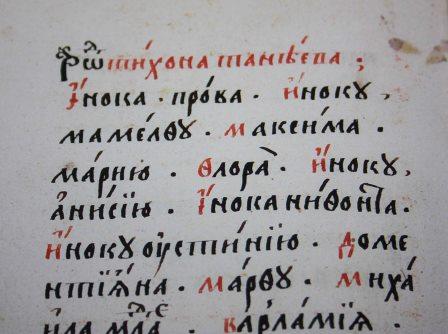 Рѡⷣ ти́хона танѣ́ева ;
І҆́нока . про́ва . И҆́нокꙋ ,
мамелѳꙋ . максима .
ма́рию . Ѳлора̀ . И҆́нокꙋ ,
а҆ни́сїю . І҆́нока ни́ѳонта .
И҆́нокꙋ оу҆стини́ю . Доме
нтїа́на . ма́рѳꙋ . миха́
варла́мїѧ .